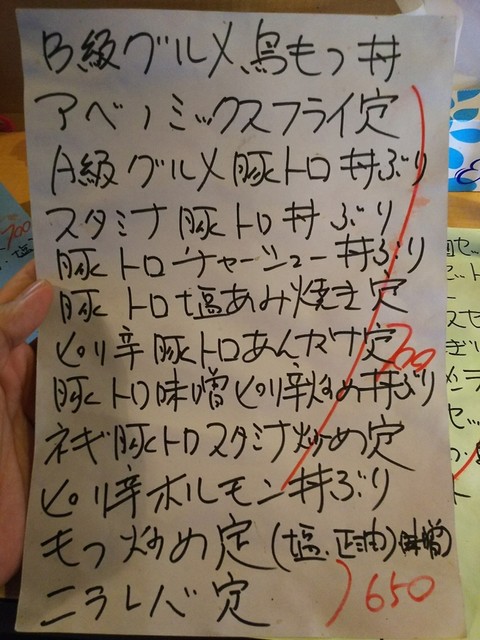 B級グルメ、鳥もつ丼
アベノミックスフライ定
A級グルメ豚トロ丼ぶり
スタミナ豚トロ丼ぶり
豚トロチャーシュー丼ぶり
豚トロ塩あみ焼き定
ピリ辛豚トロあんだけ定
700
豚トロ味噌ピリ辛炒め丼ぶり
ネギ豚トロスタミナ炒め定
ピリ辛ホルモン丼ぶり
もつ炒め定(塩、正油)味噌)
ニラレバ定 )650
700